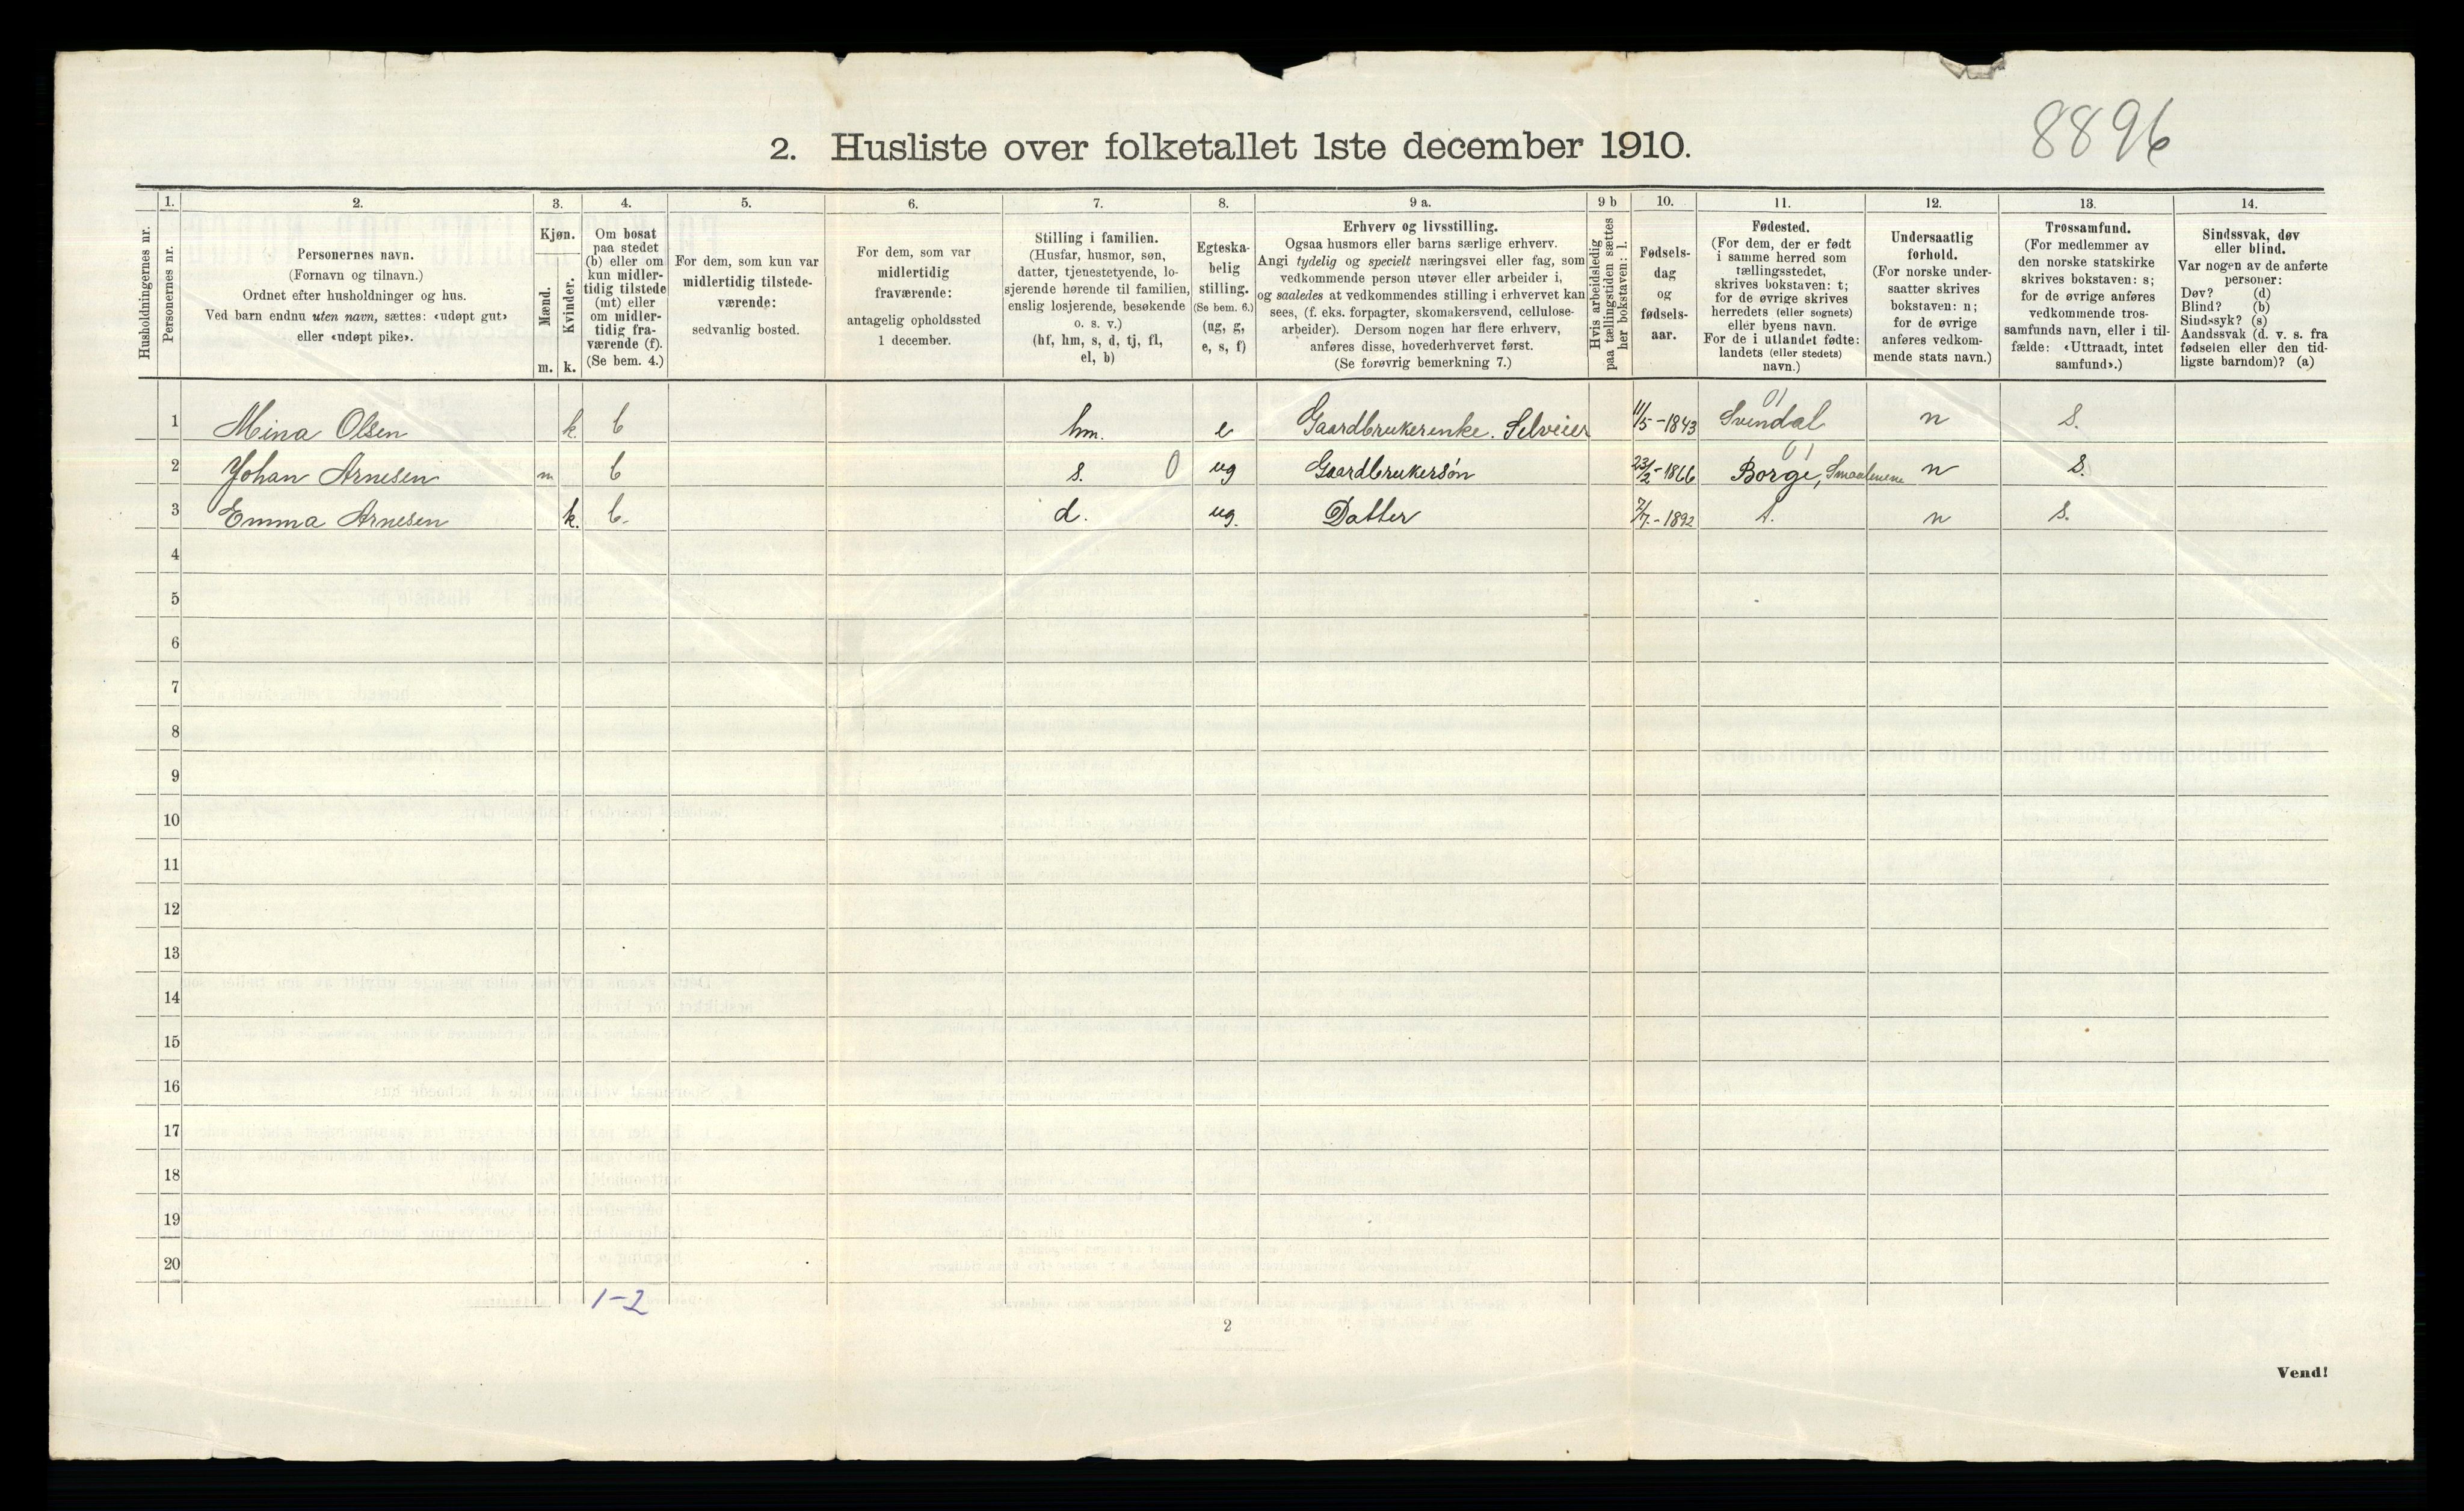 8896
2. Husliste over folketallet 1ste december 1910.
Husholdningernes nr.
1.
Personernes nr.
2.
Personernes navn.
(Fornavn og tilnavn.)
Ordnet efter husholdninger og hus.
Ved barn endnu uten navn, sættes: «udøpt gut»
eller «udøpt pike».
3.
Kjøn.
Mænd.
m.
Kvinder.
k.
4.
Om bosat
paa stedet
(b) eller om
kun midler-
tidig tilstede
(mt) eller
om midler-
tidig fra-
værende (f).
(Se bem. 4.)
5.
For dem, som kun var
midlertidig tilstede-
værende:
sedvanlig bosted.
6.
For dem, som var
midlertidig
fraværende:
antagelig opholdssted
1 december.
7.
Stilling i familien.
(Husfar, husmor, søn,
datter, tjenestetyende, lo-
sjerende hørende til familien,
enslig losjerende, besøkende
o. s. v.)
(hf, hm, s, d, tj, fl,
el, b)
8.
Egteska-
belig
stilling.
(Se bem. 6.)
(ug, g,
e, s, f)
9 a.
Erhverv og livsstilling.
Ogsaa husmors eller barns særlige erhverv.
Angi tydelig og specielt næringsvei eller fag, som
vedkommende person utøver eller arbeider i,
og saaledes at vedkommendes stilling i erhvervet kan
sees, (f. eks. forpagter, skomakersvend, cellulose-
arbeider). Dersom nogen har flere erhverv,
anføres disse, hovederhvervet først.
(Se forøvrig bemerkning 7.)
9 b
Hvis arbeidsledig
paa tællingstiden sættes
her bokstaven: l.
10.
Fødsels-
dag
og
fødsels-
aar.
11.
Fødested.
(For dem, der er født
i samme herred som
tællingsstedet,
skrives bokstaven: t;
for de øvrige skrives
herredets (eller sognets)
eller byens navn.
For de i utlandet fødte:
landets (eller stedets)
navn.)
12.
Undersaatlig
forhold.
(For norske under-
saatter skrives
bokstaven: n;
for de øvrige
anføres vedkom-
mende stats navn.)
13.
Trossamfund.
(For medlemmer av
den norske statskirke
skrives bokstaven: s;
for de øvrige anføres
vedkommende tros-
samfunds navn, eller i til-
fælde: «Uttraadt, intet
samfund».)
14.
Sindssvak, døv
eller blind.
Var nogen av de anførte
personer:
Døv? (d)
Blind? (b)
Sindssyk? (s)
Aandssvak (d. v. s. fra
fødselen eller den tid-
ligste barndom)? (a)
01
1 Mina Olsen k. b hm. e Gaardbrukerenke. Selveier 11/5-1843 Svindal n s.
01
2 Johan Arnesen m b s. 0 ug Gaardbrukersøn 23/2-1866 Borge, Smaalenene n s.
3 Emma Arnesen k. b. d. ug. Datter 7/7-1892 t. n s.
4
5
6
7
8
9
10
11
12
13
14
15
16
17
18
19
20
1-2
2
Vend!